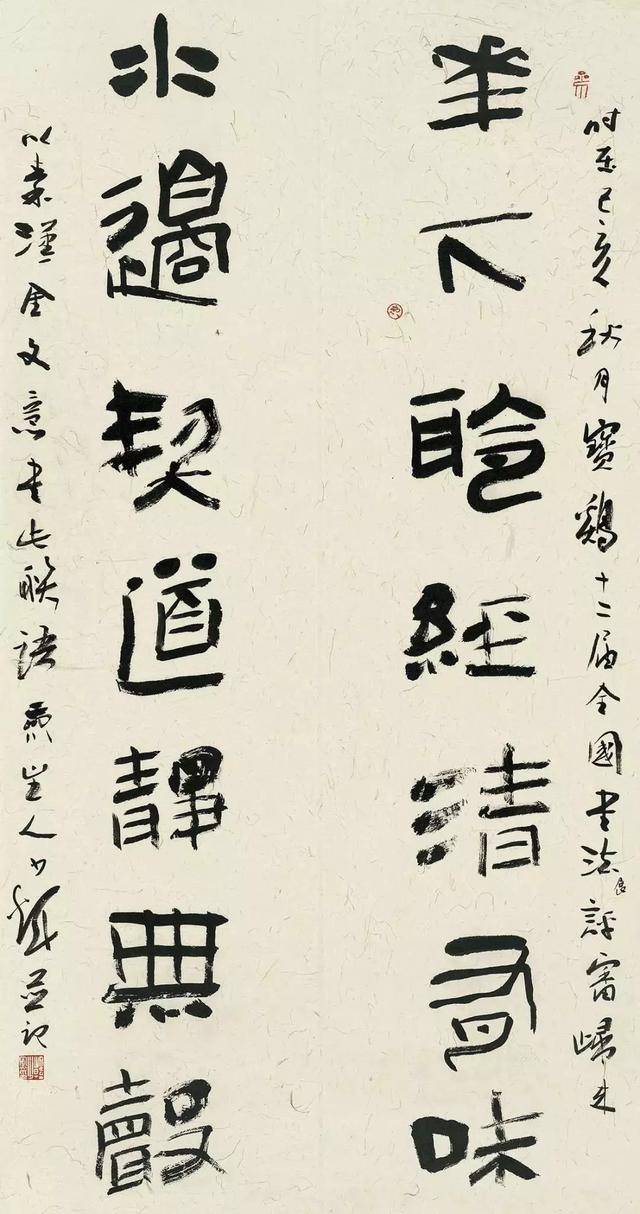 时在己亥秋月寶鷄十二届全國書法展評審歸来
下聆經清有味
水邊契道靜無聲
以秦漢金文意書此聯語人少並記